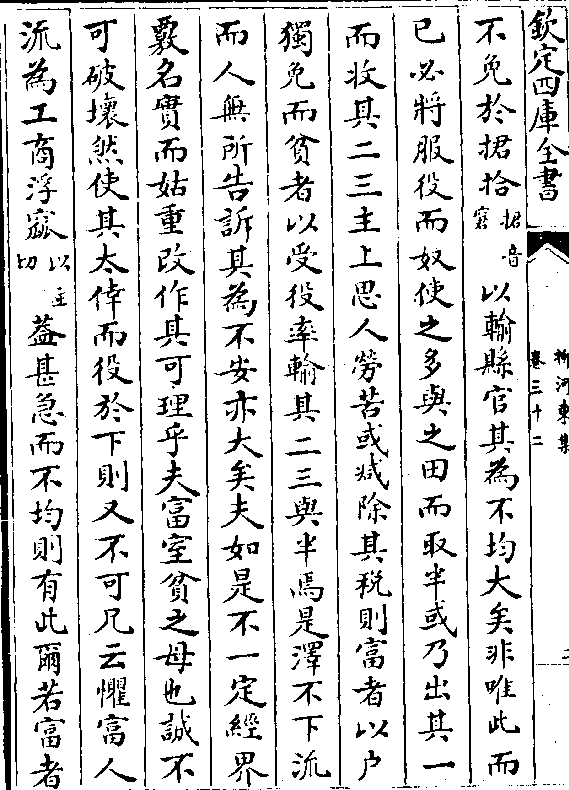 欽定四庫全書
柳河東集
卷三十二
二
不免於捃拾捃音窘以輸縣官其為不均大矣非唯此而
已必將服役而奴使之多與之田而取半或乃出其一
而收其二三主上思人勞苦或減除其稅則富者以户
獨免而貧者以受役率輸其二三與半焉是澤不下流
而人無所告訴其為不安亦大矣夫如是不一定經界
覈名實而姑重改作其可理乎夫富室貧之母也誠不
可破壞然使其太倖而役於下則又不可凡云懼富人
流為工商浮窳以主切葢甚急而不均則有此爾若富者